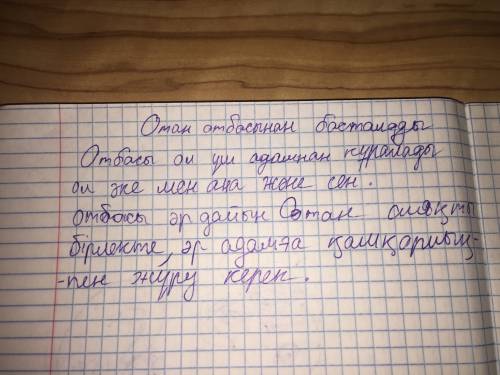 Отан отбасынан басталдды
Отбасы ол үш адамнан құралады
ол әке мен ана және сен.
отбасы әр дайын Отан
бірлекте, әр адамға
-пен жүру керек.